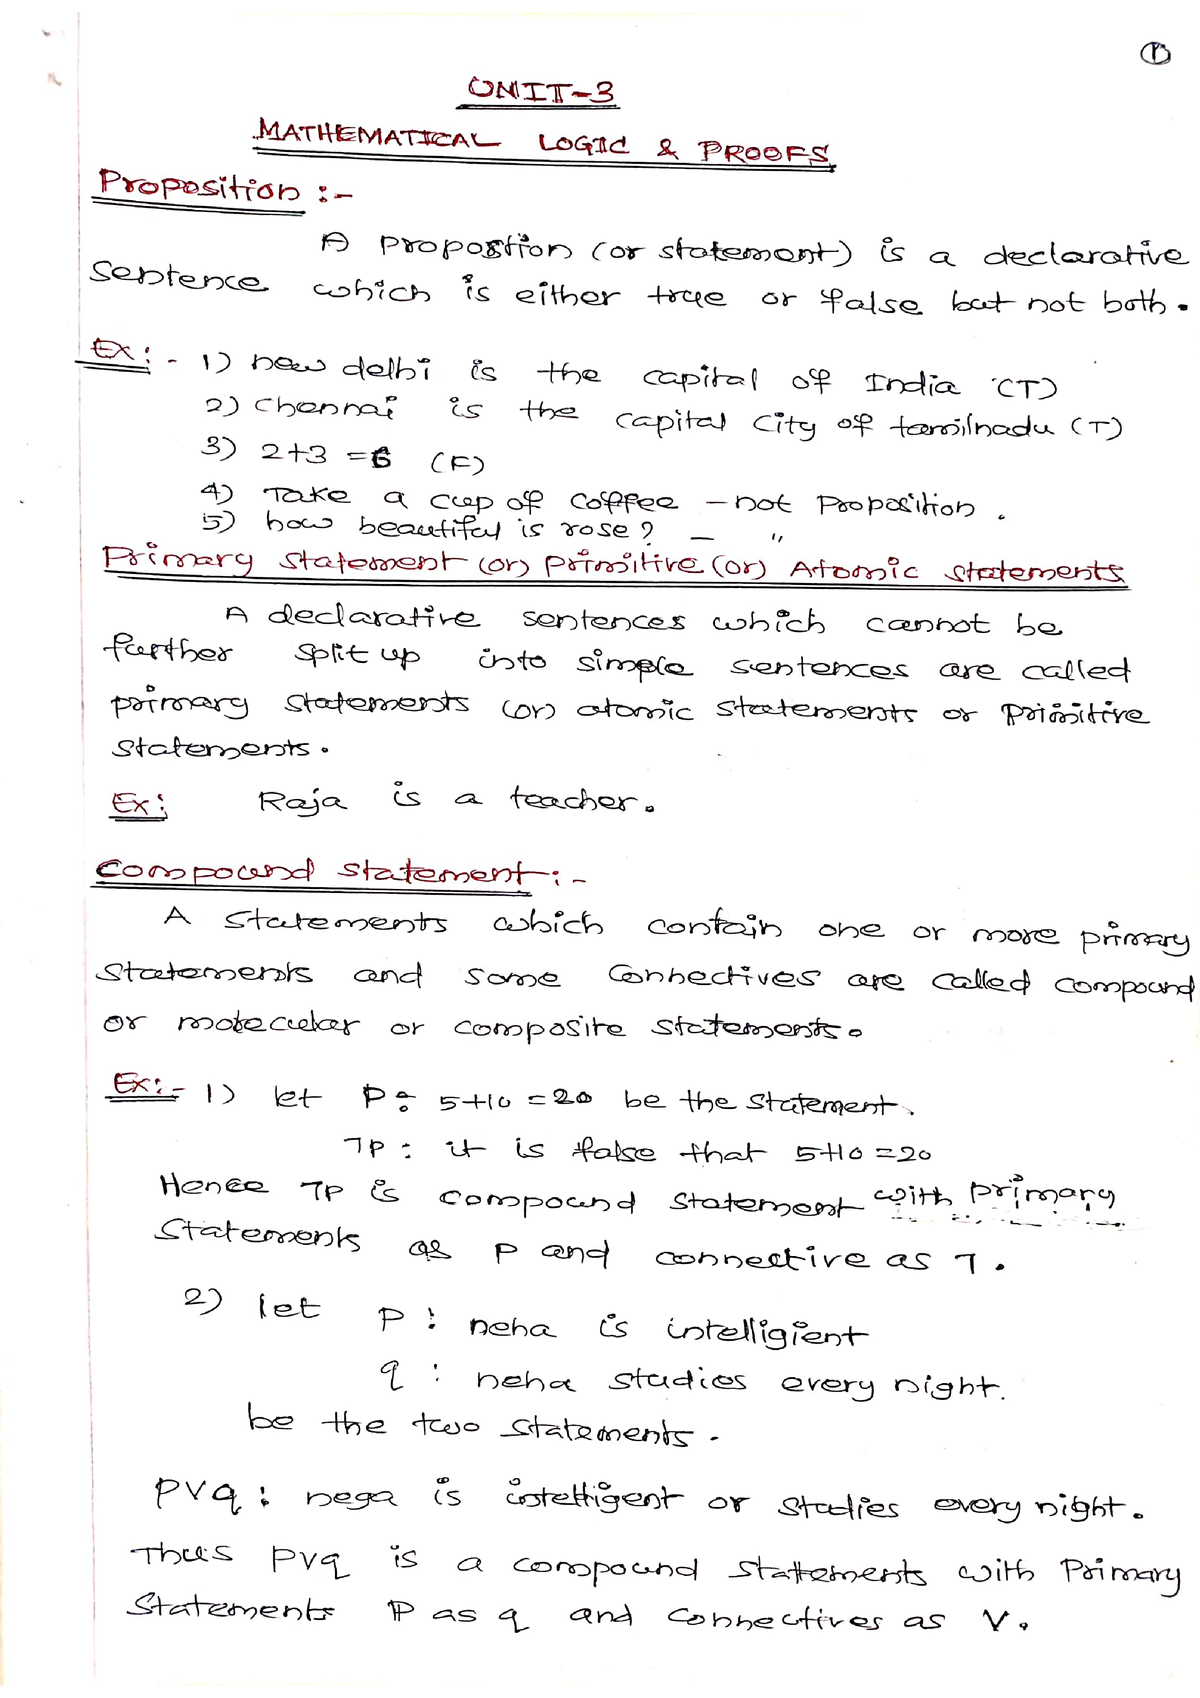 1
UNIT-3
MATHEMATICAL LOGIC & PROOFS.
Proposition :-
A propostion (or statement) is a declarative
sentence which is either true or false but not both.
Ex:- 1) new delhi is the capital of India (T)
2) Chennai is the capital city of tamilnadu (T)
3) 2+3 = 6 (F)
4) Take a cup of coffee - not proposition.
5) how beautiful is rose? - "
Primary statement (or) primitive (or) Atomic statements
A declarative sentences which cannot be
further split up into simple sentences are called
primary statements (or) atomic statements or primitive
statements.
Ex: Raja is a teacher.
Compound statement:-
A statements which contain one or more primary
statements and some connectives are called compound
or molecular or composite statements.
Ex:- 1) let P: 5+10 = 20 be the statement.
7P: it is false that 5+10 = 20
Hence 7P is compound statement with primary
statements as P and connective as 7.
2) let P: neha is intelligient
q: neha studies every night.
be the two statements.
PVq: nega is intelligent or studies every night.
Thus PVq is a compound stattements with Primary
statements P as q and connectives as V.